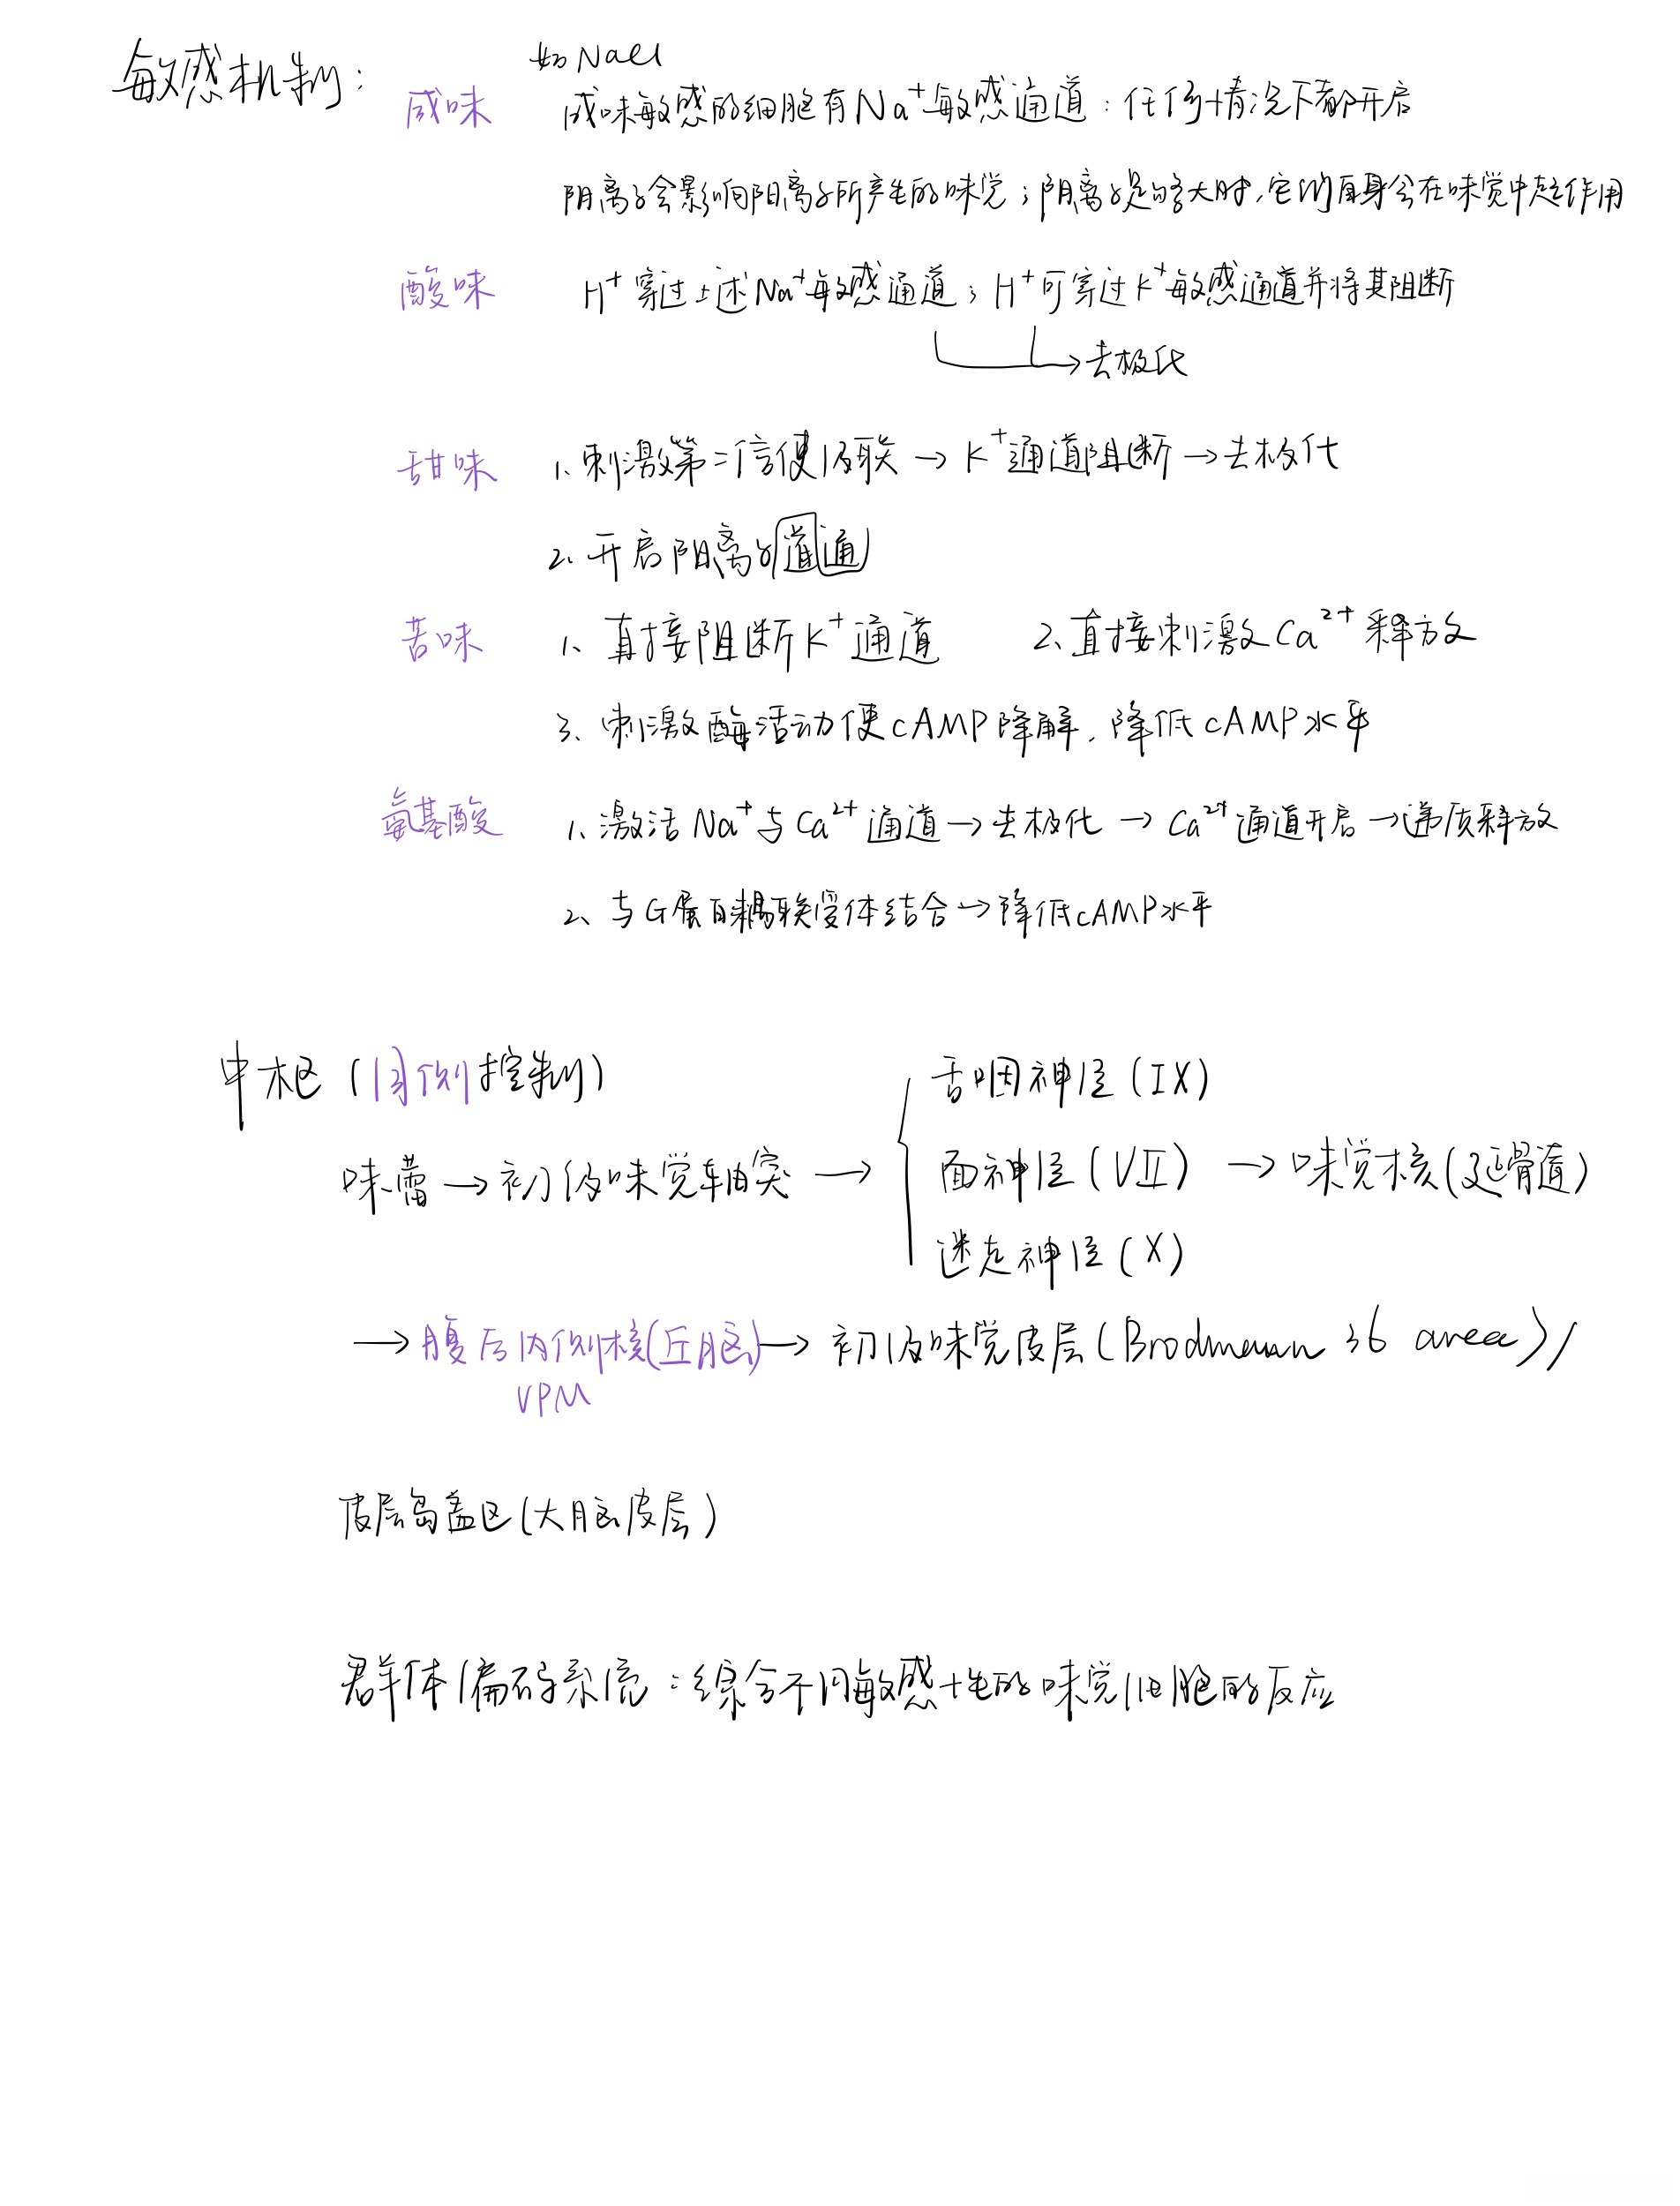 敏感机制：
如 NaCl
咸味 咸味敏感的细胞有Na⁺敏感通道：任何情况下都开启
阴离子会影响阳离子所产生的味觉；阴离子足够大时，它们自身会在味觉中起作用
酸味 H⁺穿过上述Na⁺敏感通道；H⁺可穿过K⁺敏感通道并将其阻断
→去极化
甜味 1、刺激第二信使级联→K⁺通道阻断→去极化
2、开启阳离子道通
苦味 1、直接阻断K⁺通道 2、直接刺激Ca²⁺释放
3、刺激酶活动使cAMP降解，降低cAMP水平
氨基酸 1、激活Na⁺与Ca²⁺通道→去极化→Ca²⁺通道开启→递质释放
2、与G蛋白耦联受体结合→降低cAMP水平
中枢（同侧控制）
舌咽神经（IX）
味蕾→初级味觉轴突→ 面神经（VII）→味觉核（延髓）
迷走神经（X）
→腹后内侧核(丘脑)→初级味觉皮层（Brodmann 36 area）/
VPM
皮层岛盖区（大脑皮层）
群体编码系统：综合不同敏感性的味觉细胞的反应